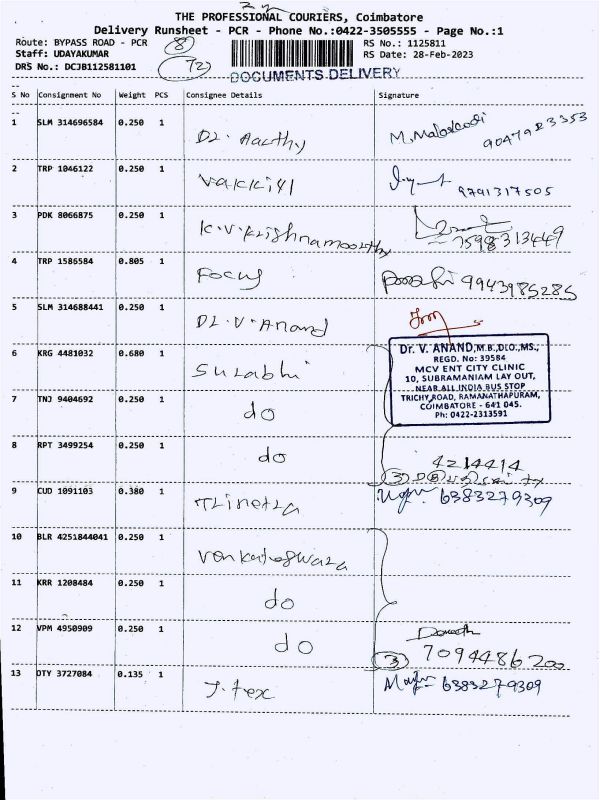 THE PROFESSIONAL COURIERS, Coimbatore
Delivery Runsheet - PCR - Phone No.:0422-3505555 - Page No.:1
Route: BYPASS ROAD - PCR 8 RS No.: 1125811
Staff: UDAYAKUMAR RS Date: 28-Feb-2023
DRS No.: DCJB112581101 72
DOCUMENTS DELIVERY
S No Consignment No Weight PCS Consignee Details Signature
1 SLM 314696584 0.250 1 Dr. Aarthy 9047923353
2 TRP 1046122 0.250 1 9791317505
3 PDK 8066875 0.250 1 K.V.Krishnamoorthy 7598313449
4 TRP 1586584 0.805 1 Focus 9943985285
5 SLM 314688441 0.250 1 Dr.V.Anand
Dr. V. ANAND,M.B.,DLO.,MS.,
REGD. No: 39584
MCV ENT CITY CLINIC
10, SUBRAMANIAM LAY OUT,
NEAR ALL INDIA BUS STOP
TRICHY ROAD, RAMANATHAPURAM,
COIMBATORE - 641 045.
Ph: 0422-2313591
6 KRG 4481032 0.680 1 Surabhi
7 TNJ 9404692 0.250 1 do
8 RPT 3499254 0.250 1 do 4214414
3
9 CUD 1091103 0.380 1 Trinetra 6383279309
10 BLR 4251844041 0.250 1 Venkateswara
11 KRR 1208484 0.250 1 do
12 VPM 4950909 0.250 1 do 3 7094486200
13 OTY 3727084 0.135 1 J.tex 6383279309